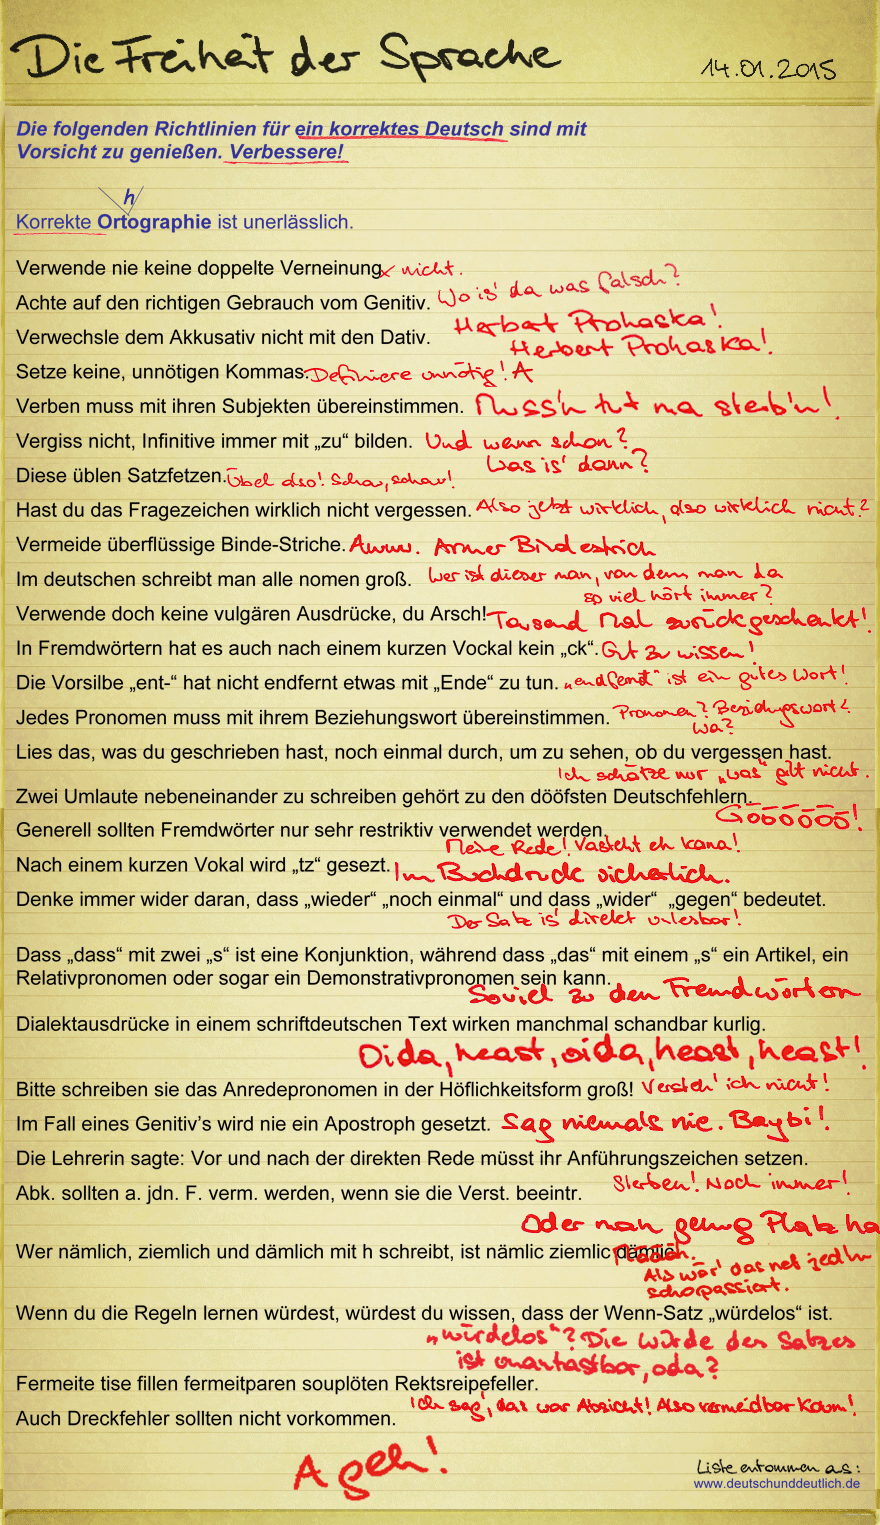 Die Freiheit der Sprache 14.01.2015
Die folgenden Richtlinien für ein korrektes Deutsch sind mit
Vorsicht zu genießen. Verbessere!
h
Korrekte Ortographie ist unerlässlich.
Verwende nie keine doppelte Verneinung. x nicht.
Achte auf den richtigen Gebrauch vom Genitiv. Wo is' da was falsch?
Verwechsle dem Akkusativ nicht mit den Dativ. Herbert Prohaska!
Herbert Prohaska!
Setze keine, unnötigen Kommas. Definiere unnötig! A
Verben muss mit ihren Subjekten übereinstimmen. Muss'n tut ma sterb'n!
Vergiss nicht, Infinitive immer mit „zu“ bilden. Und wenn schon?
Was is' dann?
Diese üblen Satzfetzen. Übel also! Schau, schau!
Hast du das Fragezeichen wirklich nicht vergessen. Also jetzt wirklich, also wirklich nicht?
Vermeide überflüssige Binde-Striche. Awww. Armer Bindestrich
Im deutschen schreibt man alle nomen groß. Wer ist dieser man, von dem man da
so viel hört immer?
Verwende doch keine vulgären Ausdrücke, du Arsch! Tausend Mal zurückgeschenkt!
In Fremdwörtern hat es auch nach einem kurzen Vockal kein „ck“. Gut zu wissen!
Die Vorsilbe „ent-“ hat nicht endfernt etwas mit „Ende“ zu tun. „endfernt“ ist ein gutes Wort!
Jedes Pronomen muss mit ihrem Beziehungswort übereinstimmen. Pronomen? Beziehungswort?
Wa?
Lies das, was du geschrieben hast, noch einmal durch, um zu sehen, ob du vergessen hast.
Ich schätze nur „was“ gilt nicht.
Zwei Umlaute nebeneinander zu schreiben gehört zu den dööfsten Deutschfehlern.
Göööööö!
Generell sollten Fremdwörter nur sehr restriktiv verwendet werden.
Meine Rede! Vasteht eh kana!
Nach einem kurzen Vokal wird „tz“ gesezt. Im Buchdruck sicherlich.
Denke immer wider daran, dass „wieder“ „noch einmal“ und dass „wider“ „gegen“ bedeutet.
Der Satz is' direkt unlesbar!
Dass „dass“ mit zwei „s“ ist eine Konjunktion, während dass „das“ mit einem „s“ ein Artikel, ein
Relativpronomen oder sogar ein Demonstrativpronomen sein kann.
Soviel zu den Fremdwörtern
Dialektausdrücke in einem schriftdeutschen Text wirken manchmal schandbar kurlig.
Oida, heast, oida, heast, heast!
Bitte schreiben sie das Anredepronomen in der Höflichkeitsform groß! Versteh' ich nicht!
Im Fall eines Genitiv’s wird nie ein Apostroph gesetzt. Sag niemals nie. Baybi!
Die Lehrerin sagte: Vor und nach der direkten Rede müsst ihr Anführungszeichen setzen.
Sterben! Noch immer!
Abk. sollten a. jdn. F. verm. werden, wenn sie die Verst. beeintr.
Oder man genug Platz ha
Wer nämlich, ziemlich und dämlich mit h schreibt, ist nämlic ziemlic dämlich.
Als wär' das net jed'm
schopassiert.
Wenn du die Regeln lernen würdest, würdest du wissen, dass der Wenn-Satz „würdelos“ ist.
„würdelos“? Die Würde des Satzes
ist unantastbar, oda?
Fermeite tise fillen fermeitparen souplöten Rektsreipefeller.
Ich sag', das war Absicht! Also vermeidbar kaum!
Auch Dreckfehler sollten nicht vorkommen.
A geh!
Liste entnommen aus:
www.deutschunddeutlich.de